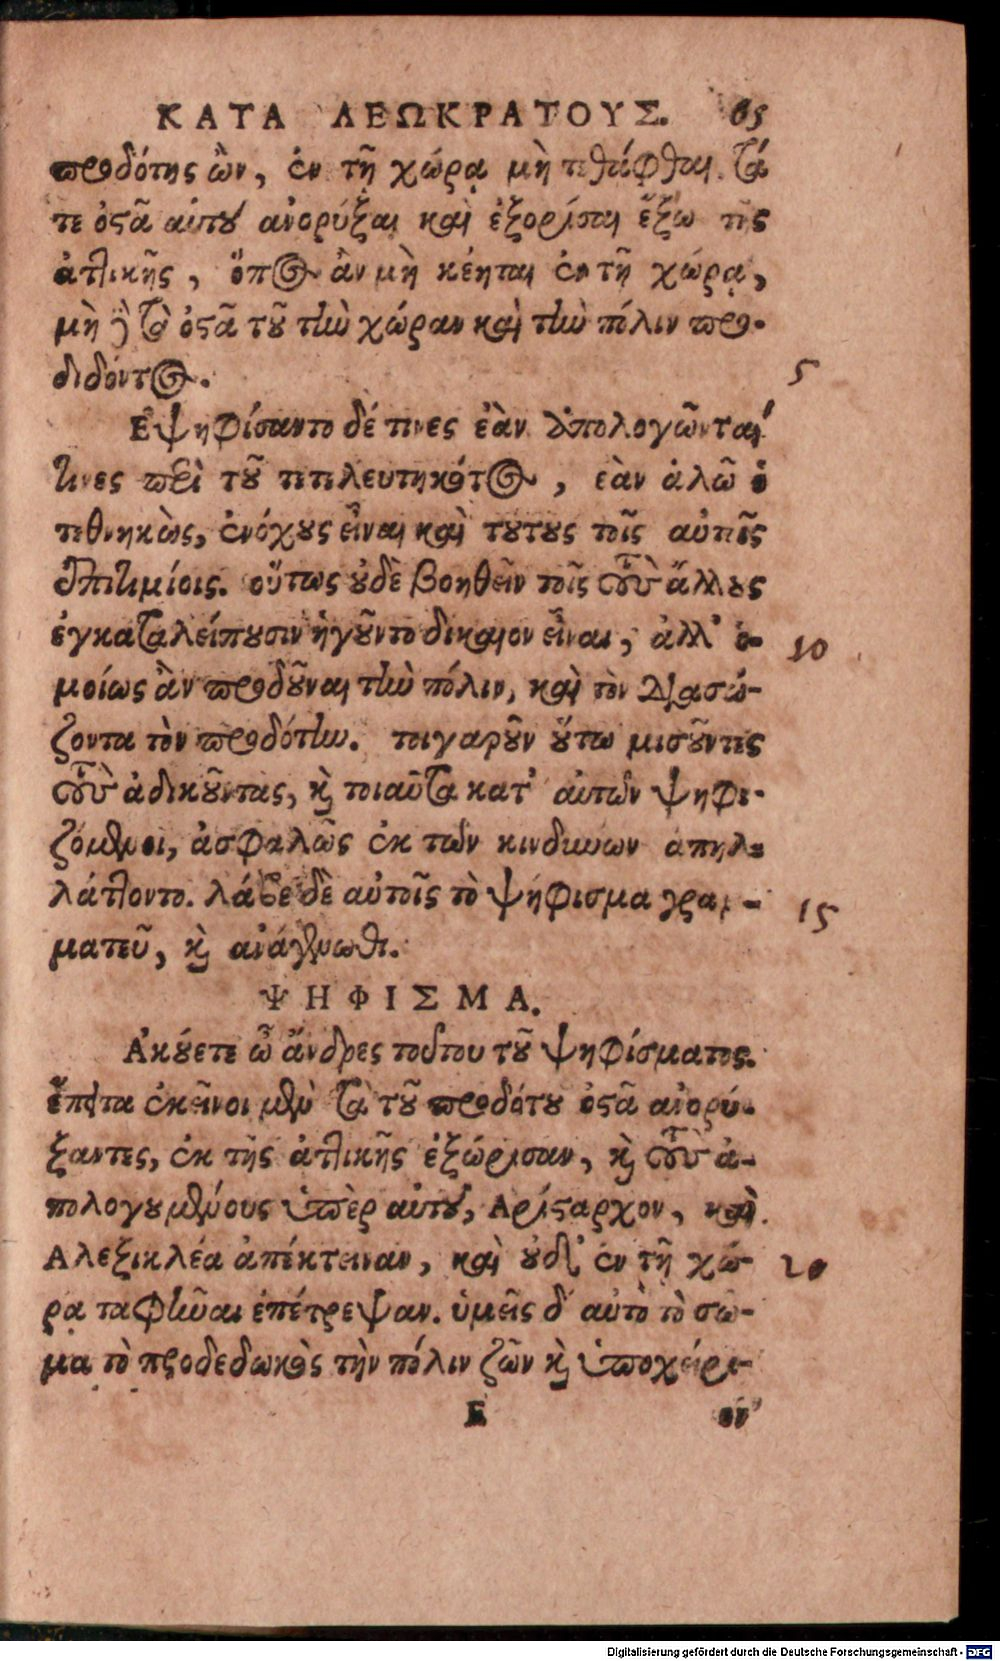 ΚΑΤΑ ΛΕΩΚΡΑΤΟΥΣ. 65
προδότης ὢν, ἐν τῇ χώρᾳ μὴ τεθάφθαι. τά
τε ὀστᾶ αὐτοῦ ἀνορύξαι καὶ ἐξορίσαι ἔξω τῆς
ἀττικῆς, ὅπως ἂν μὴ κέηται ἐν τῇ χώρᾳ,
μὴ δὲ τὰ ὀστᾶ τοῦ τὴν χώραν καὶ τὴν πόλιν προ-
διδόντος.
5
Εψηφίσαντο δέ τινες ἐὰν ἀπολογῶνταί
τινες περὶ τοῦ τετελευτηκότος, ἐὰν ἁλῶ ὁ
τεθνηκὼς, ἐνόχους εἶναι καὶ τούτους τοῖς αὐτοῖς
ἐπιτιμίοις. οὕτως οὐδὲ βοηθεῖν τοῖς τοὺς ἄλλους
ἐγκαταλείπουσιν ἡγοῦντο δίκαιον εἶναι, ἀλλ' ὁ-
10
μοίως ἂν προδοῦναι τὴν πόλιν, καὶ τὸν διασώ-
ζοντα τὸν προδότην. τοιγαροῦν οὕτω μισοῦντες
τοὺς ἀδικοῦντας, καὶ τοιαῦτα κατ' αὐτῶν ψηφι-
ζόμενοι, ἀσφαλῶς ἐκ τῶν κινδύνων ἀπηλ-
λάττοντο. λάβε δὲ αὐτοῖς τὸ ψήφισμα γραμ-
15
ματεῦ, καὶ ἀνάγνωθι.
ΨΗΦΙΣΜΑ.
Ακούετε ὦ ἄνδρες τούτου τοῦ ψηφίσματος.
ἔπειτα ἐκεῖνοι μὲν τὰ τοῦ προδότου ὀστᾶ ἀνορύ-
ξαντες, ἐκ τῆς ἀττικῆς ἐξώρισαν, καὶ τοὺς ἀ-
πολογουμένους ὑπὲρ αὐτοῦ, Αρίσταρχον, καὶ
Αλεξικλέα ἀπέκτειναν, καὶ οὐδ' ἐν τῇ χώ-
20
ρᾳ ταφῆναι ἐπέτρεψαν. ὑμεῖς δ' αὐτὸ τὸ σῶ-
μα τὸ προδεδωκὸς τὴν πόλιν ζῶν καὶ ὑποχείρι-
E ον
Digitalisierung gefördert durch die Deutsche Forschungsgemeinschaft - DFG